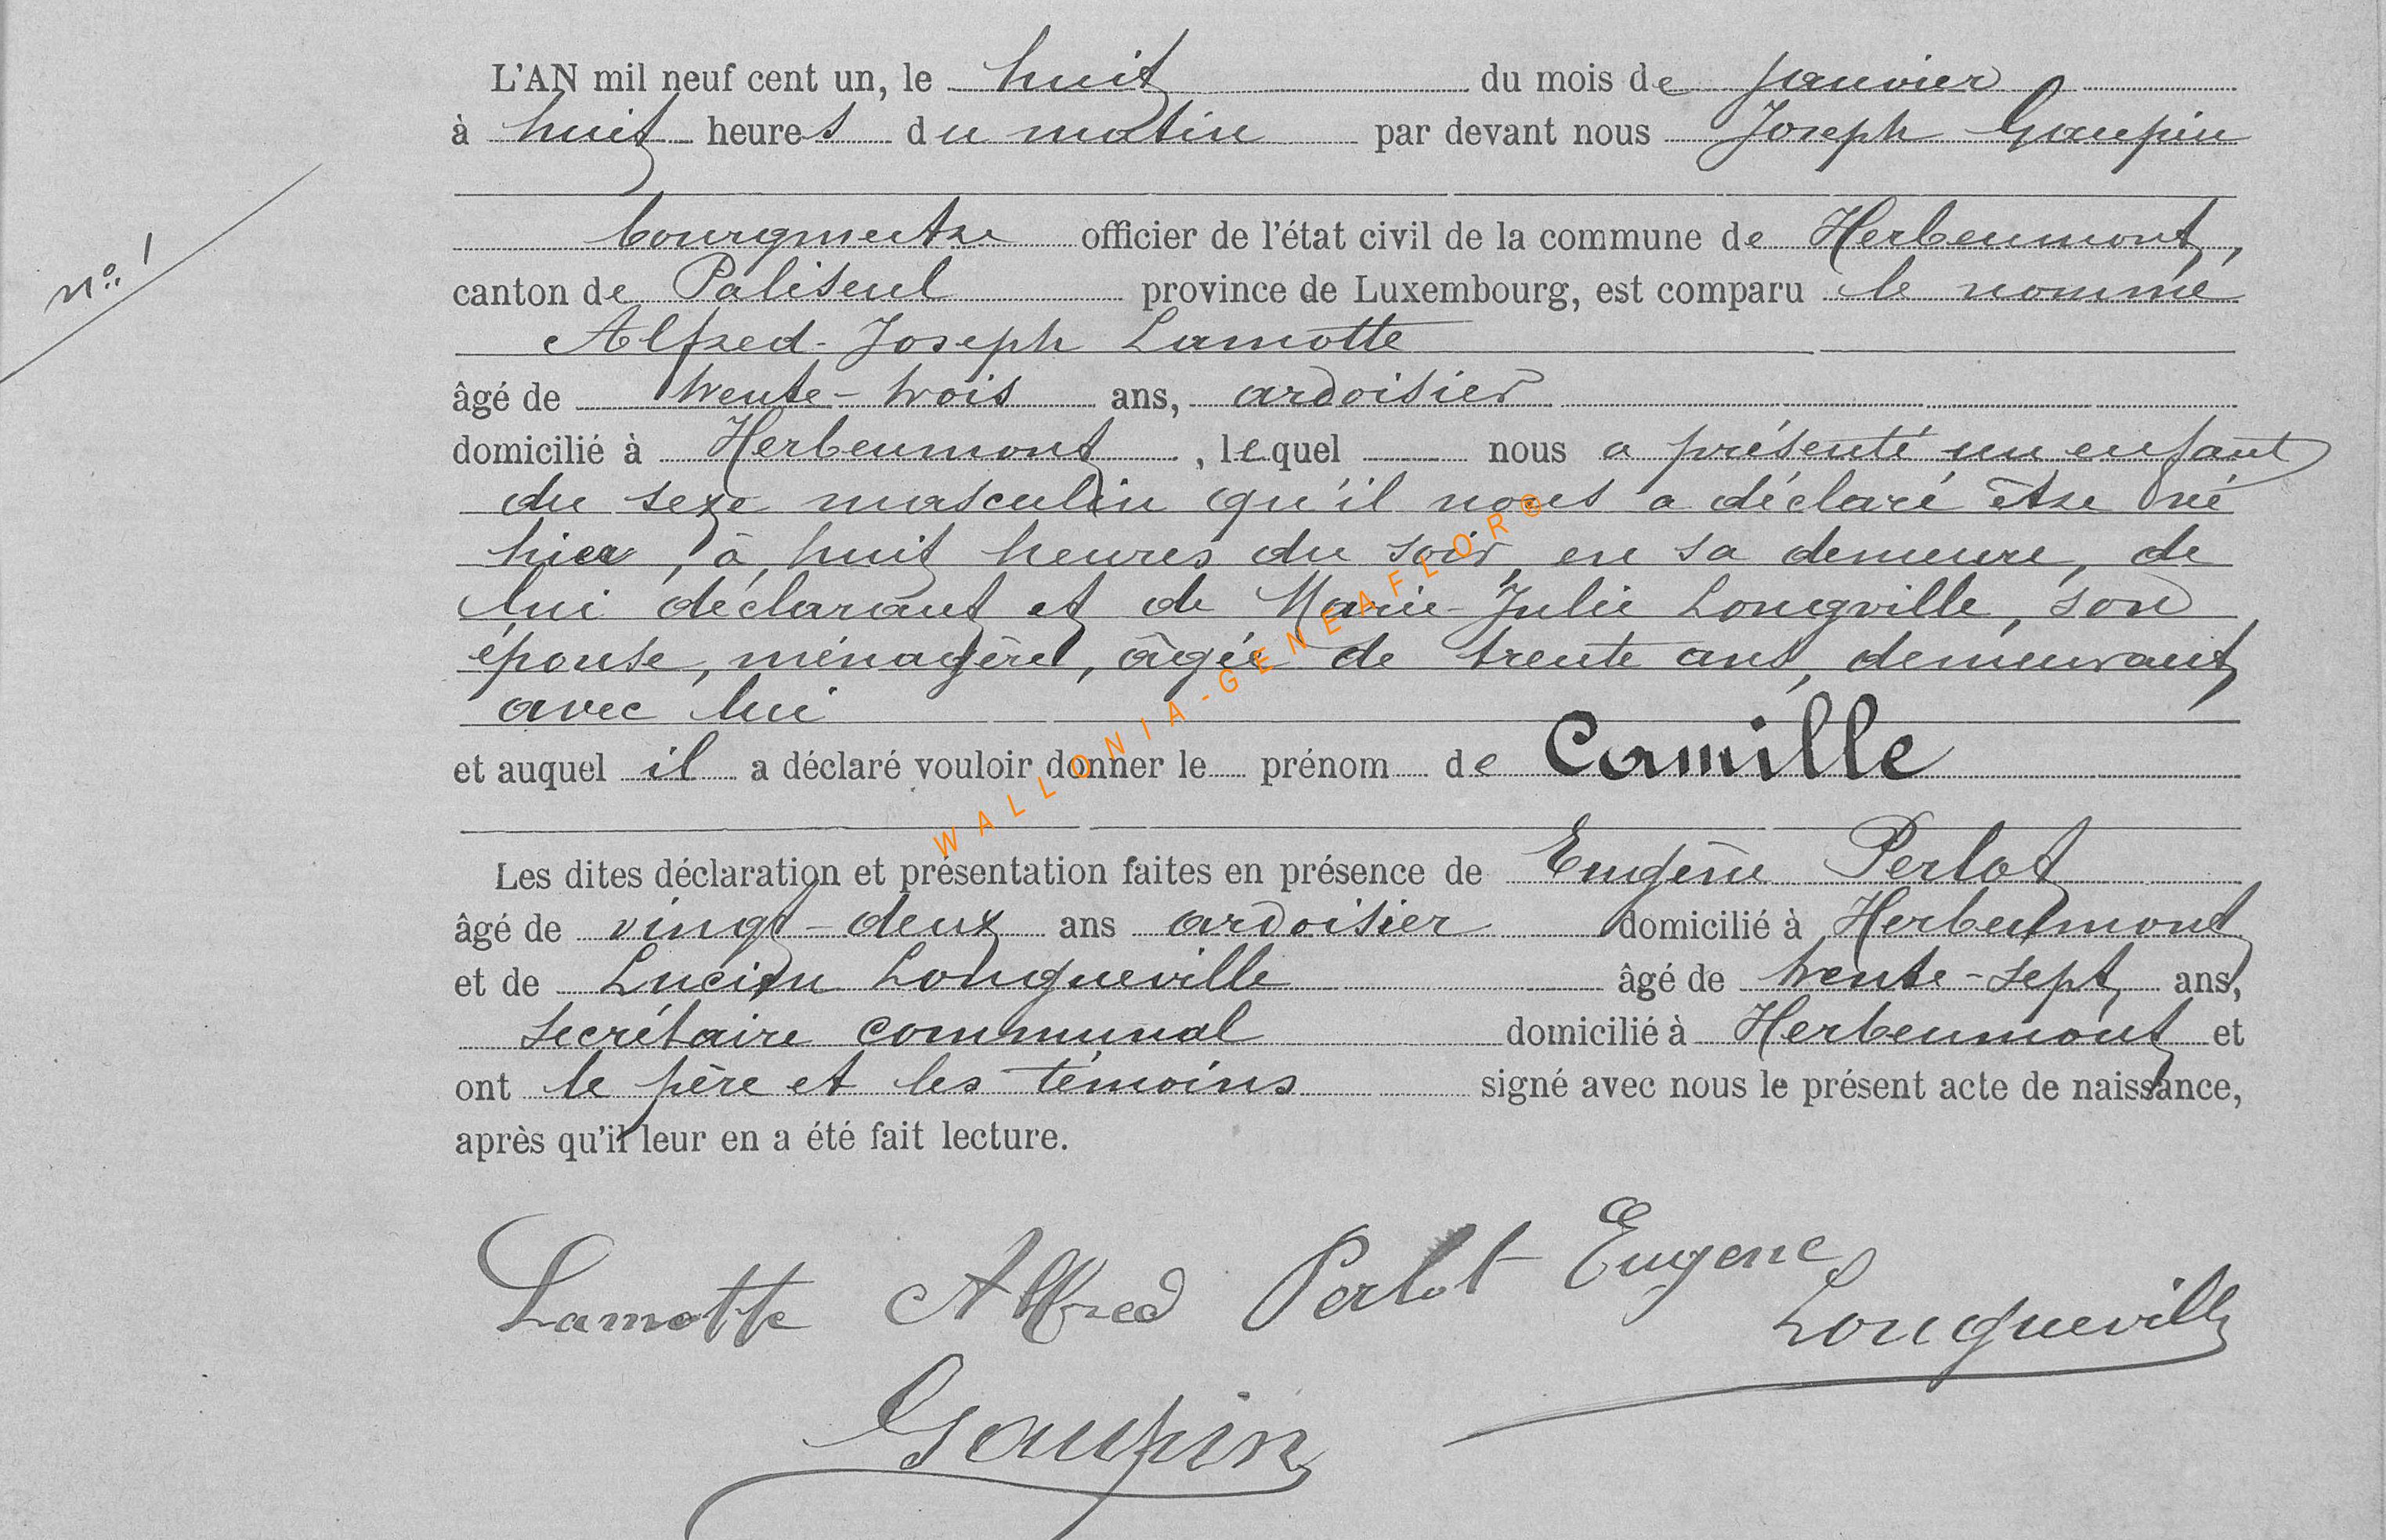 L'AN mil neuf cent un, le huit du mois de janvier
à huit heures du matin par devant nous Joseph Gaupin
bourgmestre officier de l'état civil de la commune de Herbeumont,
n° 1
canton de Paliseul province de Luxembourg, est comparu le nommé
Alfred-Joseph Lamotte
âgé de trente-trois ans, ardoisier
domicilié à Herbeumont, lequel nous a présenté un enfant
du sexe masculin qu'il nous a déclaré être né
hier, à huit heures du soir, en sa demeure, de
lui déclarant et de Marie-Julie Longville, son
épouse, ménagère, âgée de trente ans, demeurant
avec lui
et auquel il a déclaré vouloir donner le prénom de Camille
WALLONIA-GENEAFLOR®
Les dites déclaration et présentation faites en présence de Eugène Perlot
âgé de vingt-deux ans ardoisier domicilié à Herbeumont
et de Lucien Longueville âgé de trente-sept ans,
secrétaire communal domicilié à Herbeumont et
ont le père et les témoins signé avec nous le présent acte de naissance,
après qu'il leur en a été fait lecture.
Lamotte Alfred Perlot Eugène
Longueville
Gaupin